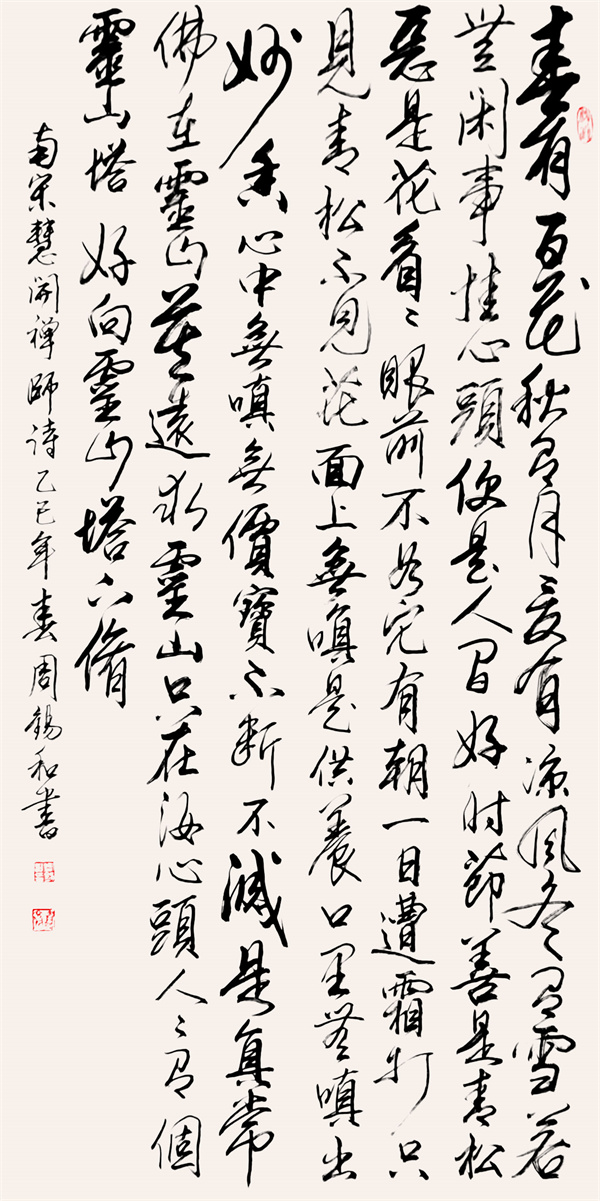 春有百花秋有月夏有凉風冬有雪若
無闲事挂心頭便是人间好时節善是青松
惡是花看々眼前不如它有朝一日遭霜打只
見青松不見花面上無嗔是供養口里無嗔出
妙香心中無嗔無價寶不断不滅是真常
佛在靈山莫遠求靈山只在汝心頭人々有個
靈山塔好向靈山塔下脩
南宋慧開禅師詩乙巳年春周錫和書